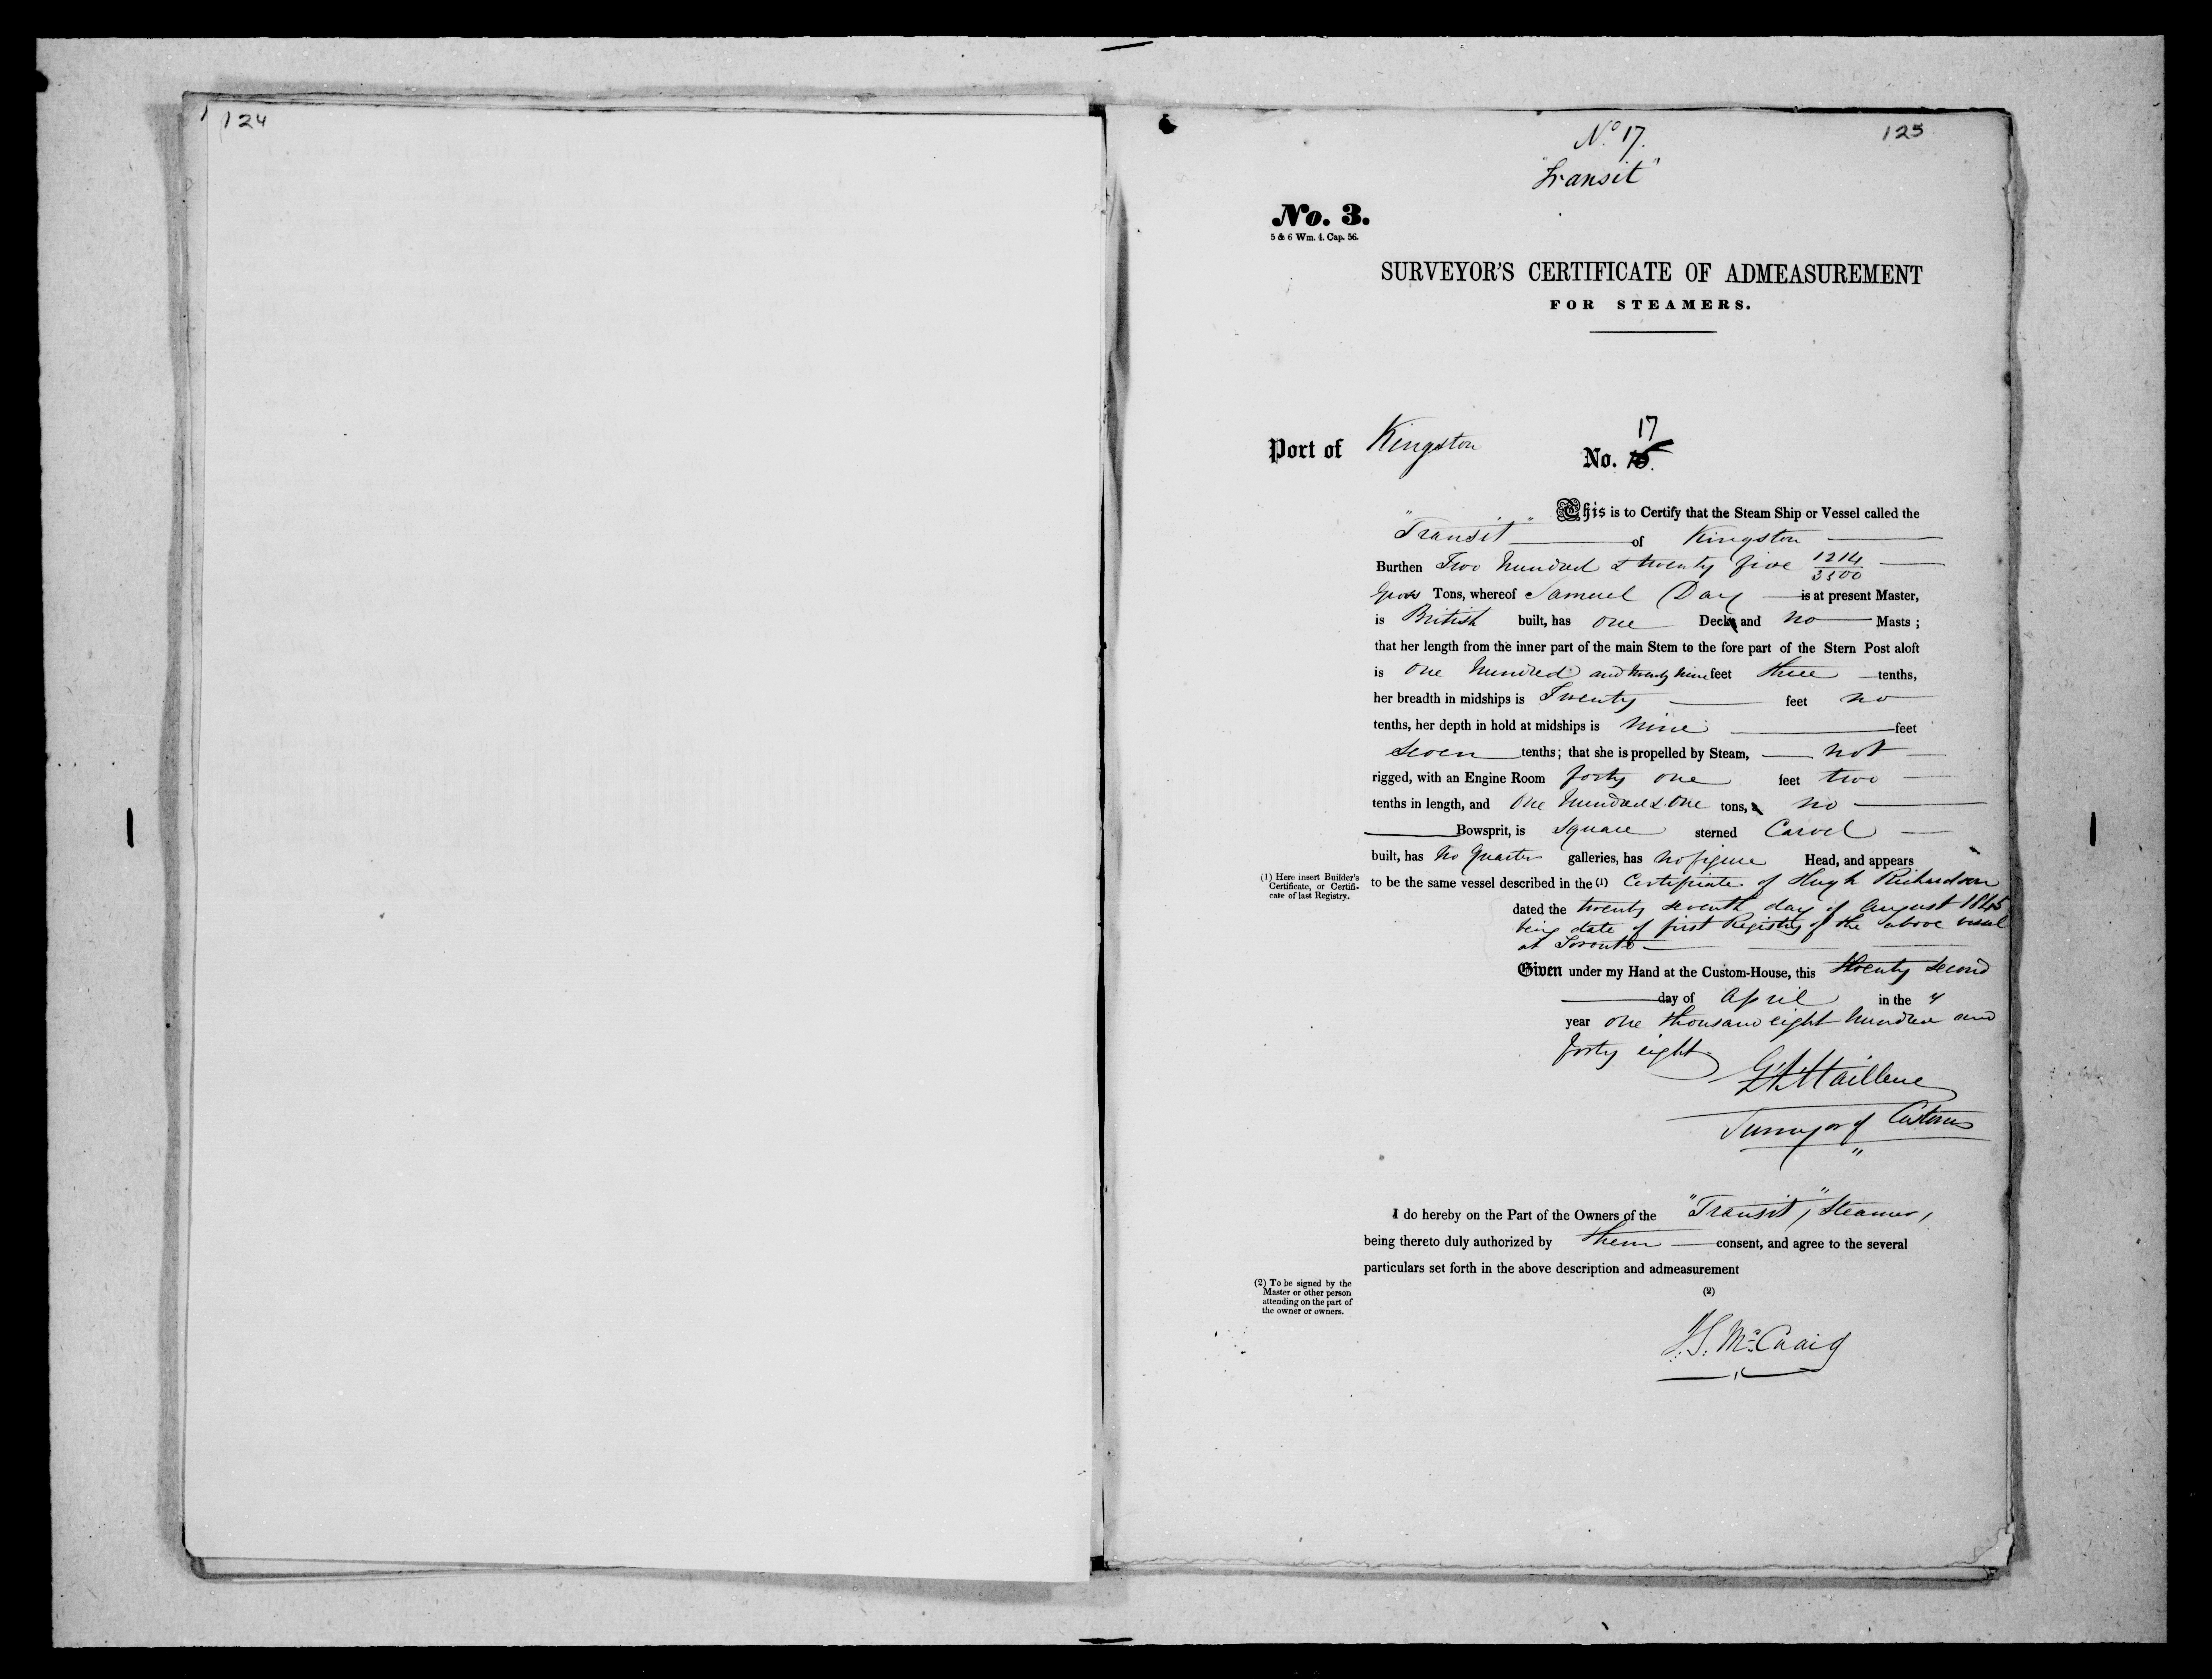 124
125
No. 17.
"Transit"
No. 3.
5 & 6 Wm. 4. Cap. 56.
SURVEYOR'S CERTIFICATE OF ADMEASUREMENT
FOR STEAMERS.
17
Port of Kingston No.
This is to Certify that the Steam Ship or Vessel called the
"Transit" of Kingston
Burthen Two hundred & twenty five 1214/3500
Gross Tons, whereof Samuel Day is at present Master,
is British built, has one Deck and no Masts;
that her length from the inner part of the main Stem to the fore part of the Stern Post aloft
is One hundred and twenty nine feet three tenths,
her breadth in midships is Twenty feet no
tenths, her depth in hold at midships is nine feet
seven tenths; that she is propelled by Steam, not
rigged, with an Engine Room forty one feet two
tenths in length, and One hundred & One tons, no
Bowsprit, is Square sterned Carvel
built, has no Quarter galleries, has no figure Head, and appears
to be the same vessel described in the (1) Certificate of Hugh Richardson
(1) Here insert Builder's
Certificate, or Certifi-
cate of last Registry.
dated the twenty seventh day of August 1845
being date of first Registry of the above vessel
at Toronto
Given under my Hand at the Custom-House, this twenty second
day of April in the
year one thousand eight hundred and
forty eight
Surveyor of Customs
I do hereby on the Part of the Owners of the "Transit," Steamer,
being thereto duly authorized by them consent, and agree to the several
particulars set forth in the above description and admeasurement
(2) To be signed by the
Master or other person
attending on the part of
the owner or owners.
(2)
McCuaig